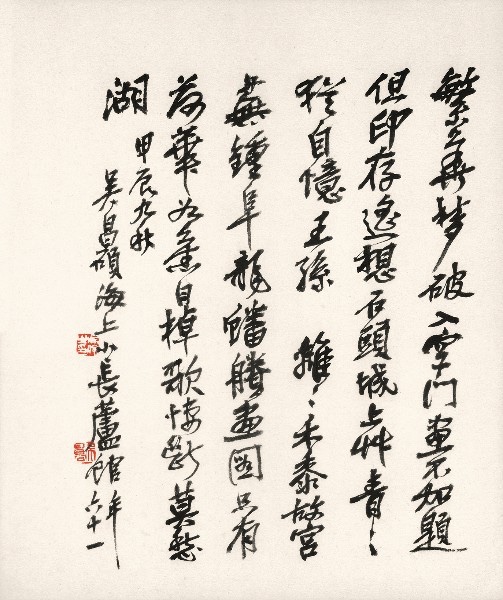 繁華夢破入空門畫不知題
但印存遙想石頭城上艸青〻
猶自憶王孫 離〻禾黍故宮
蕪鍾阜龍蟠賸畫圖只有
荷華如舊日棹歌悽斷莫愁
湖 甲辰九秋
吳昌碩海上小長蘆館年六十一